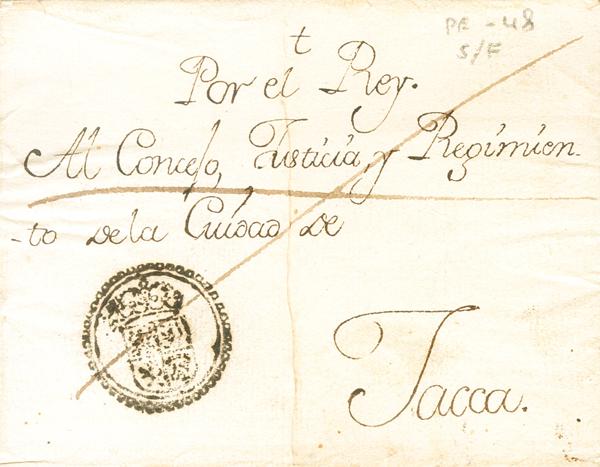 PE - 48
S/F
t
Por el Rey.
Al Concejo, Justicia, y Regimien-
-to de la Ciudad de
Jacca.